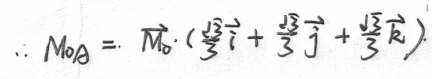 ∴ M_{OA} = \vec{M_o} · (\frac{\sqrt{3}}{3}\vec{i} + \frac{\sqrt{3}}{3}\vec{j} + \frac{\sqrt{3}}{3}\vec{k}).